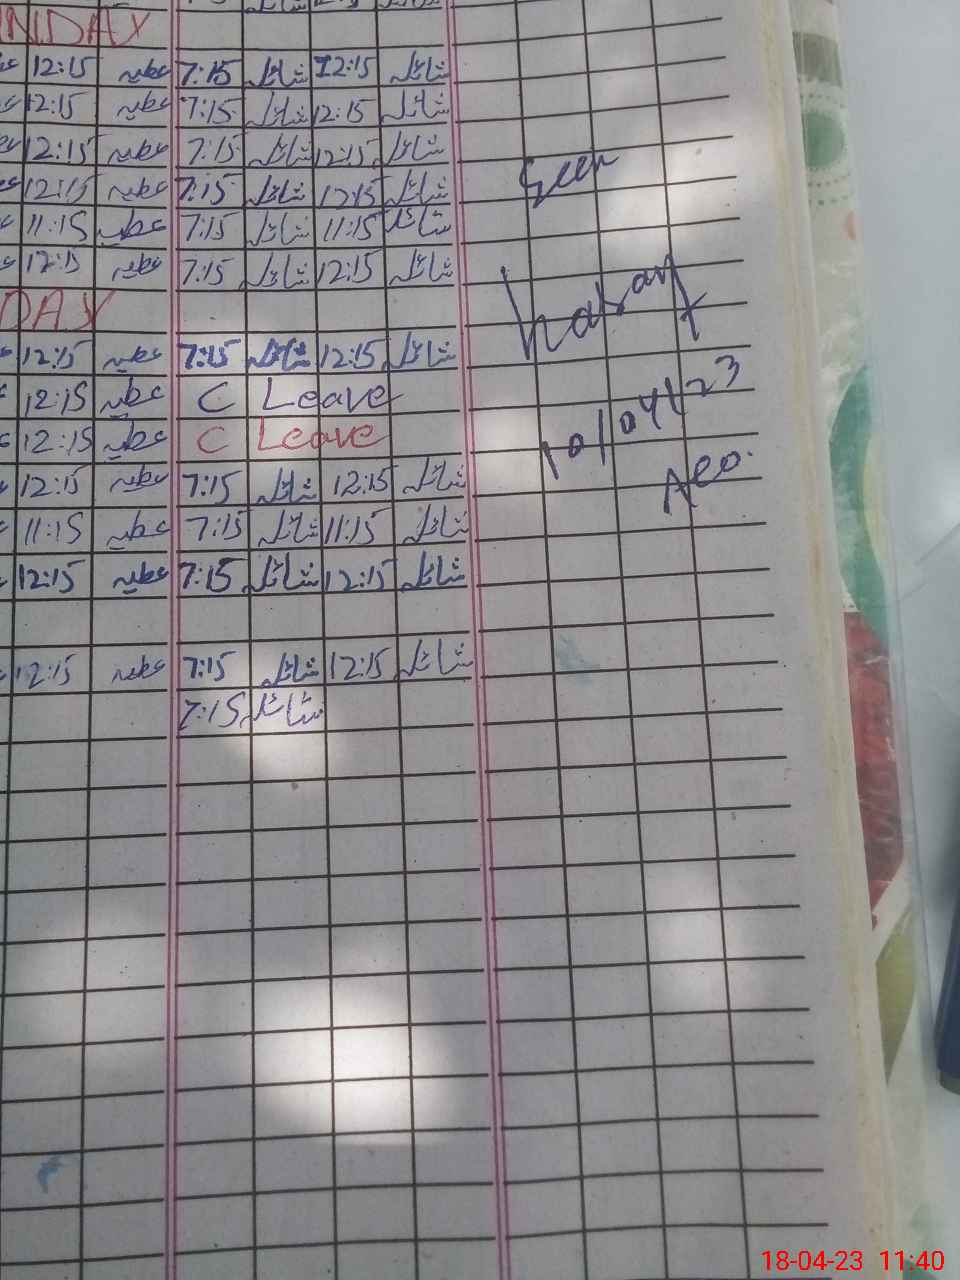 NDAY
12:15 عطیہ 7:15 شمائلہ 12:15 شمائلہ
12:15 عطیہ 7:15 شمائلہ 12:15 شمائلہ
12:15 عطیہ 7:15 شمائلہ 12:15 شمائلہ
12:15 عطیہ 7:15 شمائلہ 12:15 شمائلہ
11:15 عطیہ 7:15 شمائلہ 11:15 شمائلہ
12:15 عطیہ 7:15 شمائلہ 12:15 شمائلہ
DAY
12:15 عطیہ 7:15 شمائلہ 12:15 شمائلہ
12:15 عطیہ C Leave
12:15 عطیہ C Leave
12:15 عطیہ 7:15 شمائلہ 12:15 شمائلہ
11:15 عطیہ 7:15 شمائلہ 11:15 شمائلہ
12:15 عطیہ 7:15 شمائلہ 12:15 شمائلہ
12:15 عطیہ 7:15 شمائلہ 12:15 شمائلہ
7:15 شمائلہ
Seen
10/04/23
AEO.
18-04-23 11:40